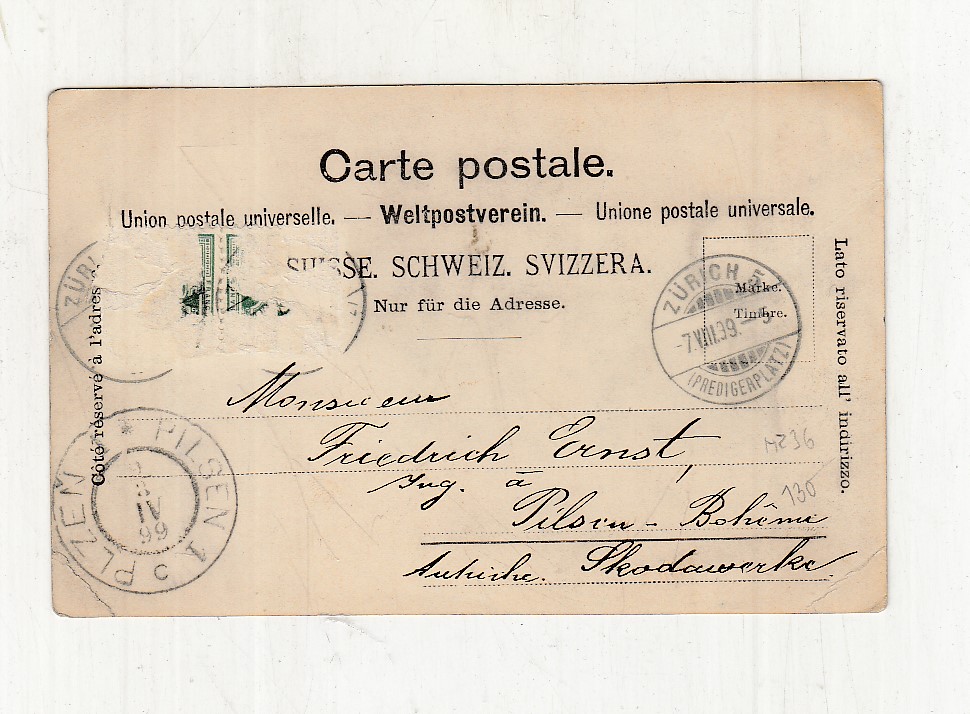 Carte postale.
Union postale universelle. — Weltpostverein. — Unione postale universale.
SUISSE. SCHWEIZ. SVIZZERA.
Nur für die Adresse.
Marke.
Timbre.
Côté réservé à l'adres
Lato riservato all' indirizzo.
ZÜRICH 5
7.VIII.99.–5
(PREDIGERPLATZ)
ZÜRI
Monsieur
Friedrich Ernst,
Ing. à
Pilsen - Bohême
Autriche. Skodawerke
PILSEN 1
PLZEŇ
99
HZ36
130